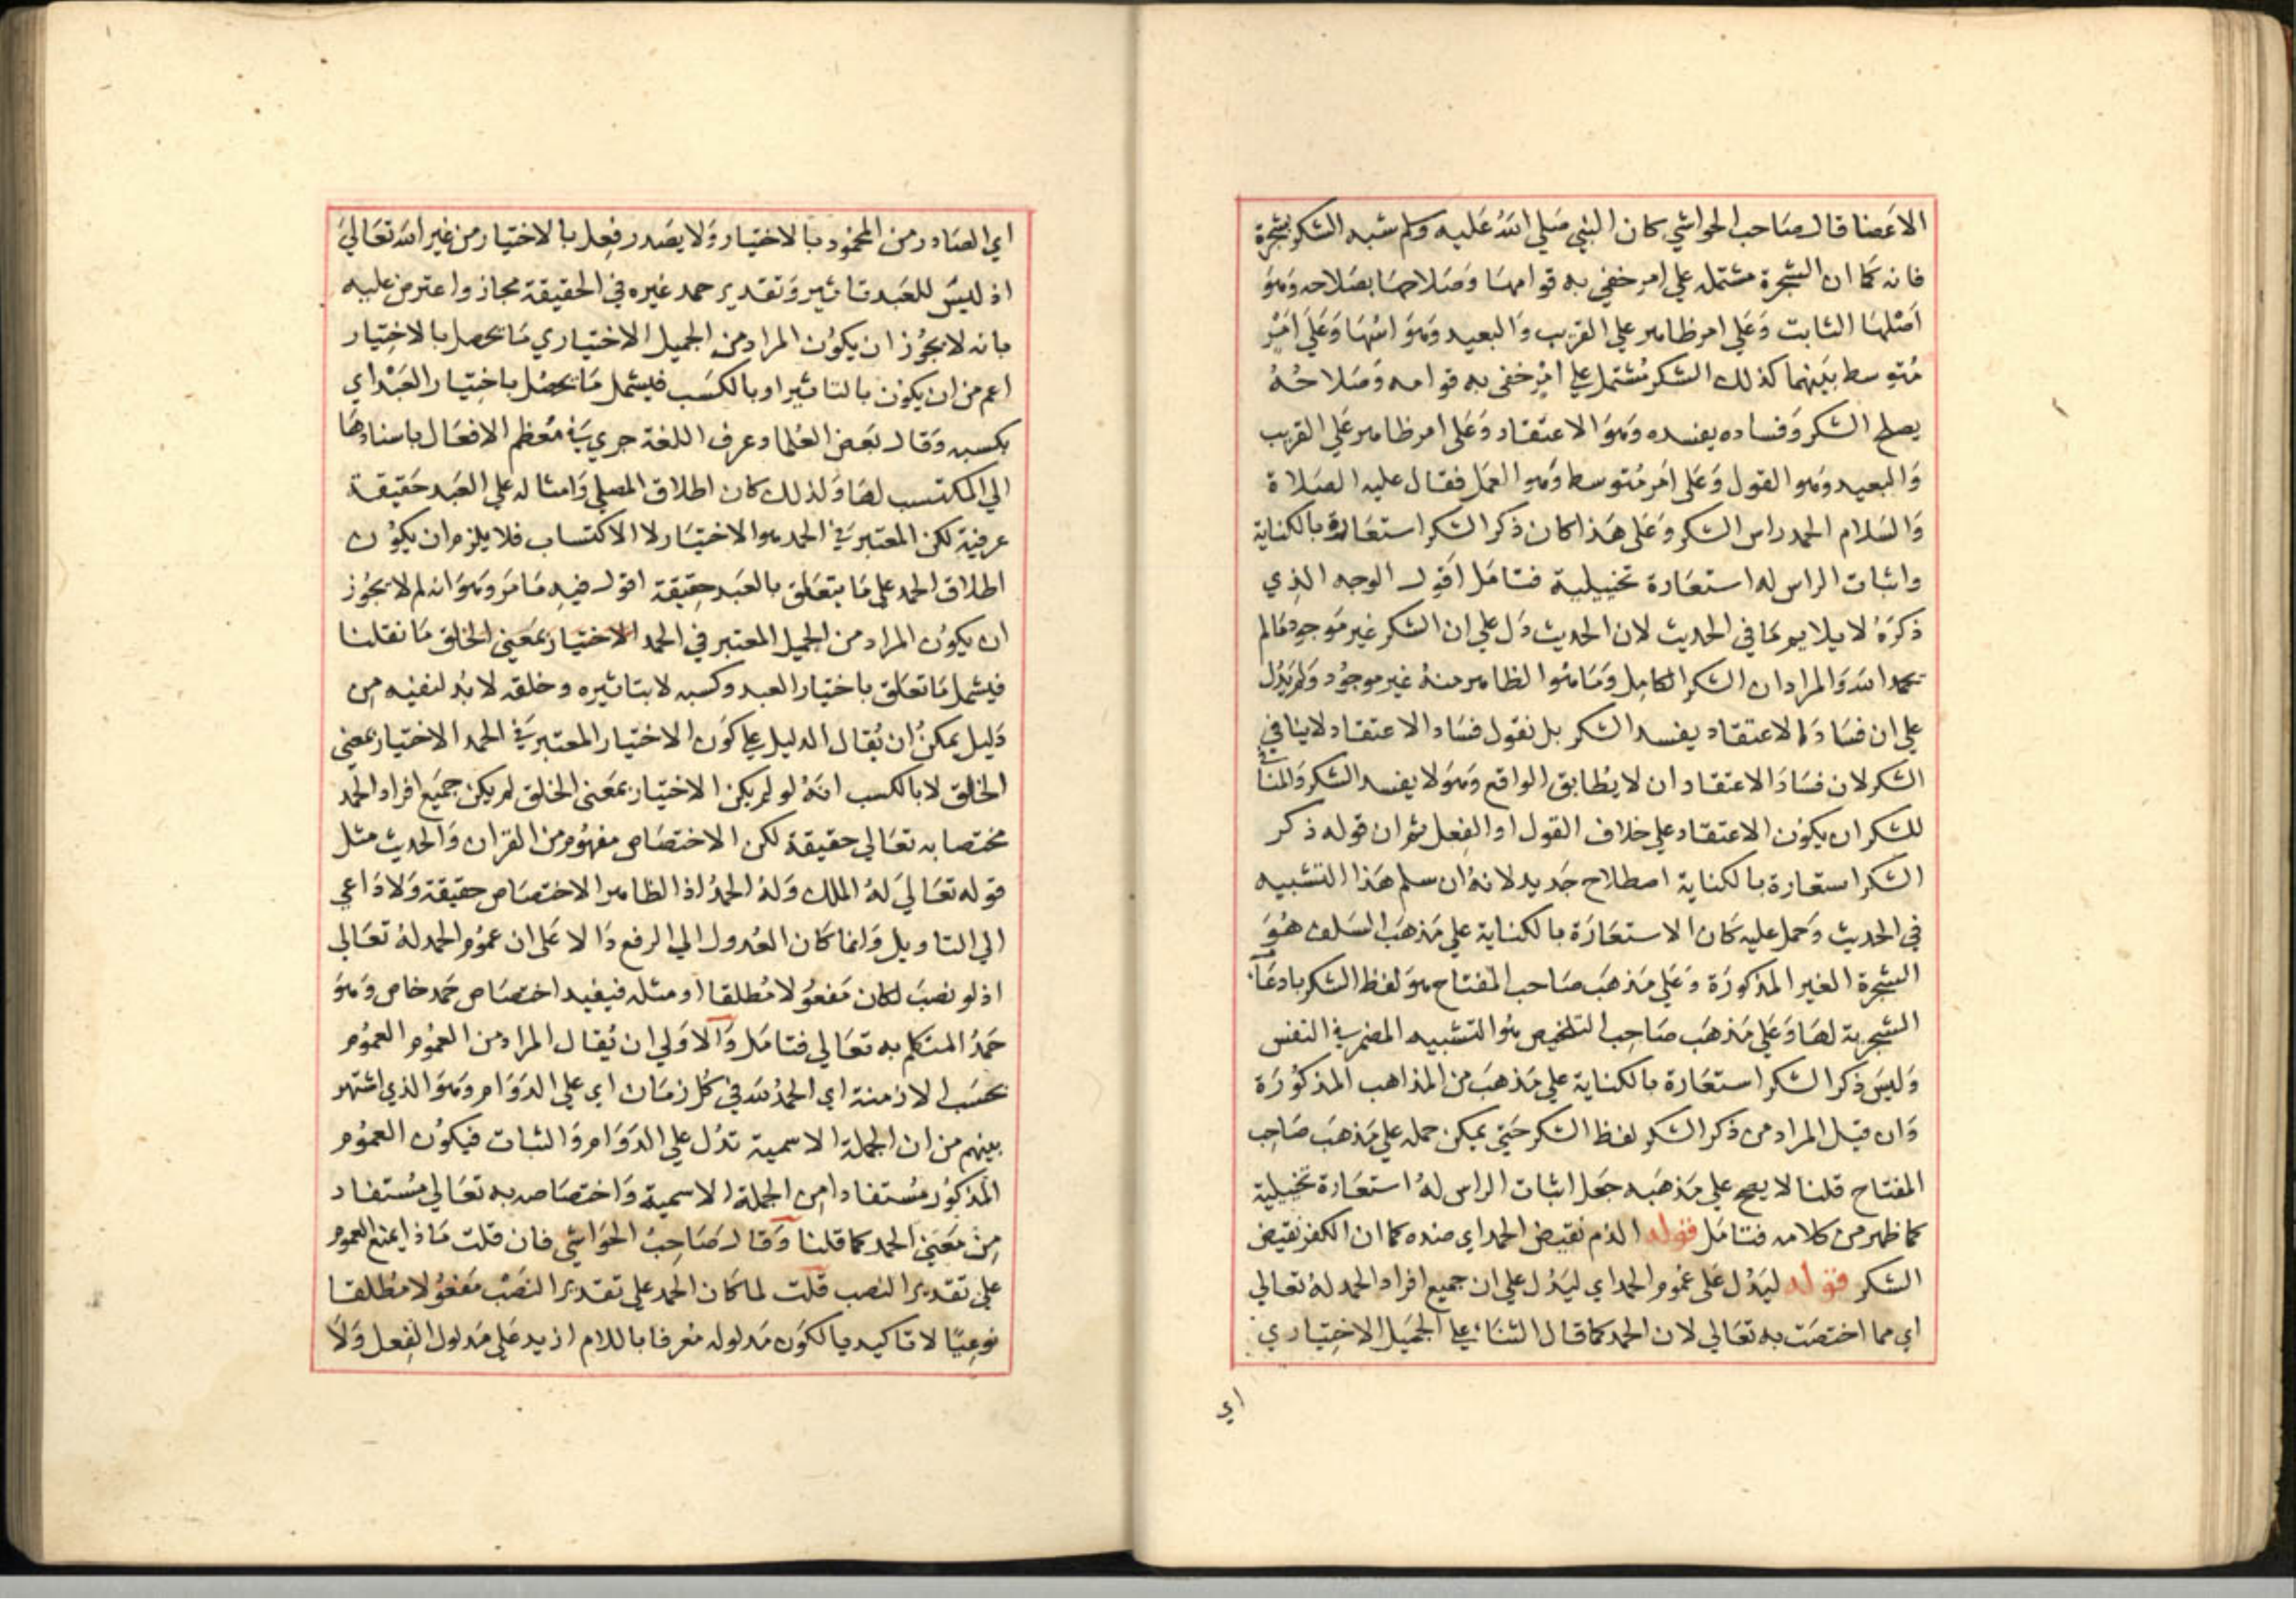 الاعضا قال صاحب الحواشي كان النبي صلي الله عليه وسلم شبه الشكر بشجرة
فانه كما ان الشجرة مشتمله علي امر خفي به قوامها وصلاحها بصلاحه وهو
اصلها الثابت وعلي امر ظاهر علي القريب والبعيد وهو اسها وعلي امر
متوسط بينهما كذلك الشكر مشتمل علي امر خفي به قوامه وصلاحه
يصلح الشكر وفساده يفسده وهو الاعتقاد وعلي امر ظاهر علي القريب
والبعيد وهو القول وعلي امر متوسط وهو العمل فقال عليه الصلاة
والسلام الحمد راس الشكر وعلي هذا كان ذكر الشكر استعارة بالكناية
واثبات الراس له استعارة تخييلية فتامل اقول الوجه الذي
ذكره لا يلايم ما في الحديث لان الحديث دل علي ان الشكر غير موجود ما لم
يحمد الله والمراد ان الشكر الكامل وما هو الظاهر منه غير موجود ولم يدل
علي ان فساد الاعتقاد يفسد الشكر بل نقول فساد الاعتقاد لا ينافي
الشكر لان فساد الاعتقاد ان لا يطابق الواقع وهو لا يفسد الشكر والمنافي
للشكر ان يكون الاعتقاد علي خلاف القول او الفعل ثم ان قوله ذكر
الشكر استعارة بالكناية اصطلاح جديد لانه ان سلم هذا التشبيه
في الحديث وحمل عليه كان الاستعارة بالكناية علي مذهب السلف هو
الشجرة الغير المذكورة وعلي مذهب صاحب المفتاح هو لفظ الشكر بادعاء
الشجرية لها وعلي مذهب صاحب التلخيص هو التشبيه المضمر في النفس
وليس ذكر الشكر استعارة بالكناية علي مذهب من المذاهب المذكورة
وان قيل المراد من ذكر الشكر لفظ الشكر حتي يمكن حمله علي مذهب صاحب
المفتاح قلنا لا يصح علي مذهبه جعل اثبات الراس له استعارة تخييلية
كما ظهر من كلامه فتامل قوله الذم نقيض الحمد اي ضده كما ان الكفر نقيض
الشكر قوله ليدل علي عموم الحمد اي ليدل علي ان جميع افراد الحمد له تعالي
اي مما اختصت به تعالي لان الحمد كما قال الثناء علي الجميل الاختياري
اي
اي الصادر من المحمود بالاختيار ولا يصدر فعل بالاختيار من غير الله تعالي
اذ ليس للعبد تاثير وتقدير حمد غيره في الحقيقة مجاز واعترض عليه
بانه لا يجوز ان يكون المراد من الجميل الاختياري ما يحصل بالاختيار
اعم من ان يكون بالتاثير او بالكسب فيشمل ما يحصل باختيار العبد اي
بكسبه وقال بعض العلما وعرف اللغة جري في معظم الافعال باسنادها
الي المكتسب لها ولذلك كان اطلاق المصلي وامثاله علي العبد حقيقة
عرفية لكن المعتبر في الحمد هو الاختيار لا الاكتساب فلا يلزم ان يكون
اطلاق الحمد علي ما يتعلق بالعبد حقيقة اقول فيه ما مر وهو انه لم لا يجوز
ان يكون المراد من الجميل المعتبر في الحمد الاختيار بمعني الخلق ما نقلنا
فيشمل ما تعلق باختيار العبد وكسبه لا بتاثيره وخلقه لا بد لنفيه من
دليل يمكن ان يقال الدليل علي كون الاختيار المعتبر في الحمد الاختيار بمعني
الخلق لا بالكسب انه لو لم يكن الاختيار بمعني الخلق لم يكن جميع افراد الحمد
مختصا به تعالي حقيقة لكن الاختصاص مفهوم من القران والحديث مثل
قوله تعالي له الملك وله الحمد اذ الظاهر الاختصاص حقيقة ولا داعي
الي التاويل وانما كان العدول الي الرفع دالا علي ان عموم الحمد له تعالي
اذ لو نصب لكان مفعولا مطلقا او مثله فيفيد اختصاص حمد خاص وهو
حمد المتكلم به تعالي فتامل والاولي ان يقال المراد من العموم العموم
بحسب الازمنة اي الحمد لله في كل زمان اي علي الدوام وهو الذي اشتهر
بينهم من ان الجملة الاسمية تدل علي الدوام والثبات فيكون العموم
المذكور مستفادا من الجملة الاسمية واختصاصه به تعالي مستفاد
من معني الحمد كما قلنا وقال صاحب الحواشي فان قلت ماذا يمنع العموم
علي تقدير النصب قلت لما كان الحمد علي تقدير النصب مفعولا مطلقا
نوعيا لا تاكيديا لكون مدلوله معرفا باللام ازيد علي مدلول الفعل ولا